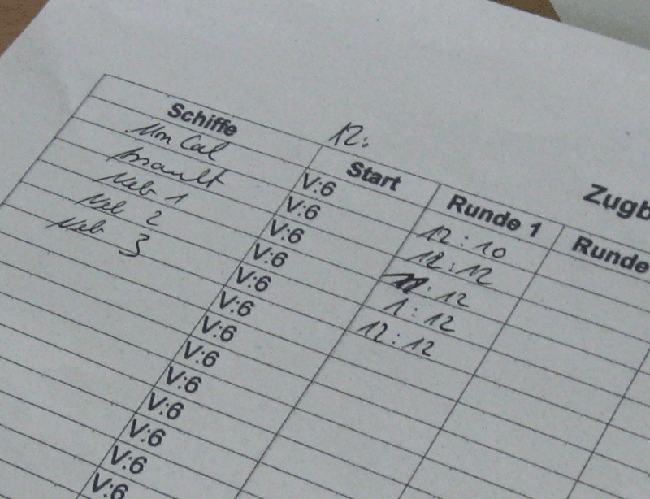 Zugb
12:
Schiffe Start Runde 1 Runde
Mon Cal V:6 12:10
Assault V:6 12:12
Neb 1 V:6 :12
Neb 2 V:6 1:12
Neb 3 V:6 12:12
V:6
V:6
V:6
V:6
V:6
V:6
V:6
V:6